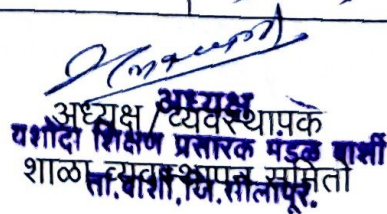 अध्यक्ष
अध्यक्ष / व्यवस्थापक
यशोदा शिक्षण प्रसारक मंडळ बार्शी
शाळा व्यवस्थापन समिती
ता.बार्शी, जि.सोलापूर.